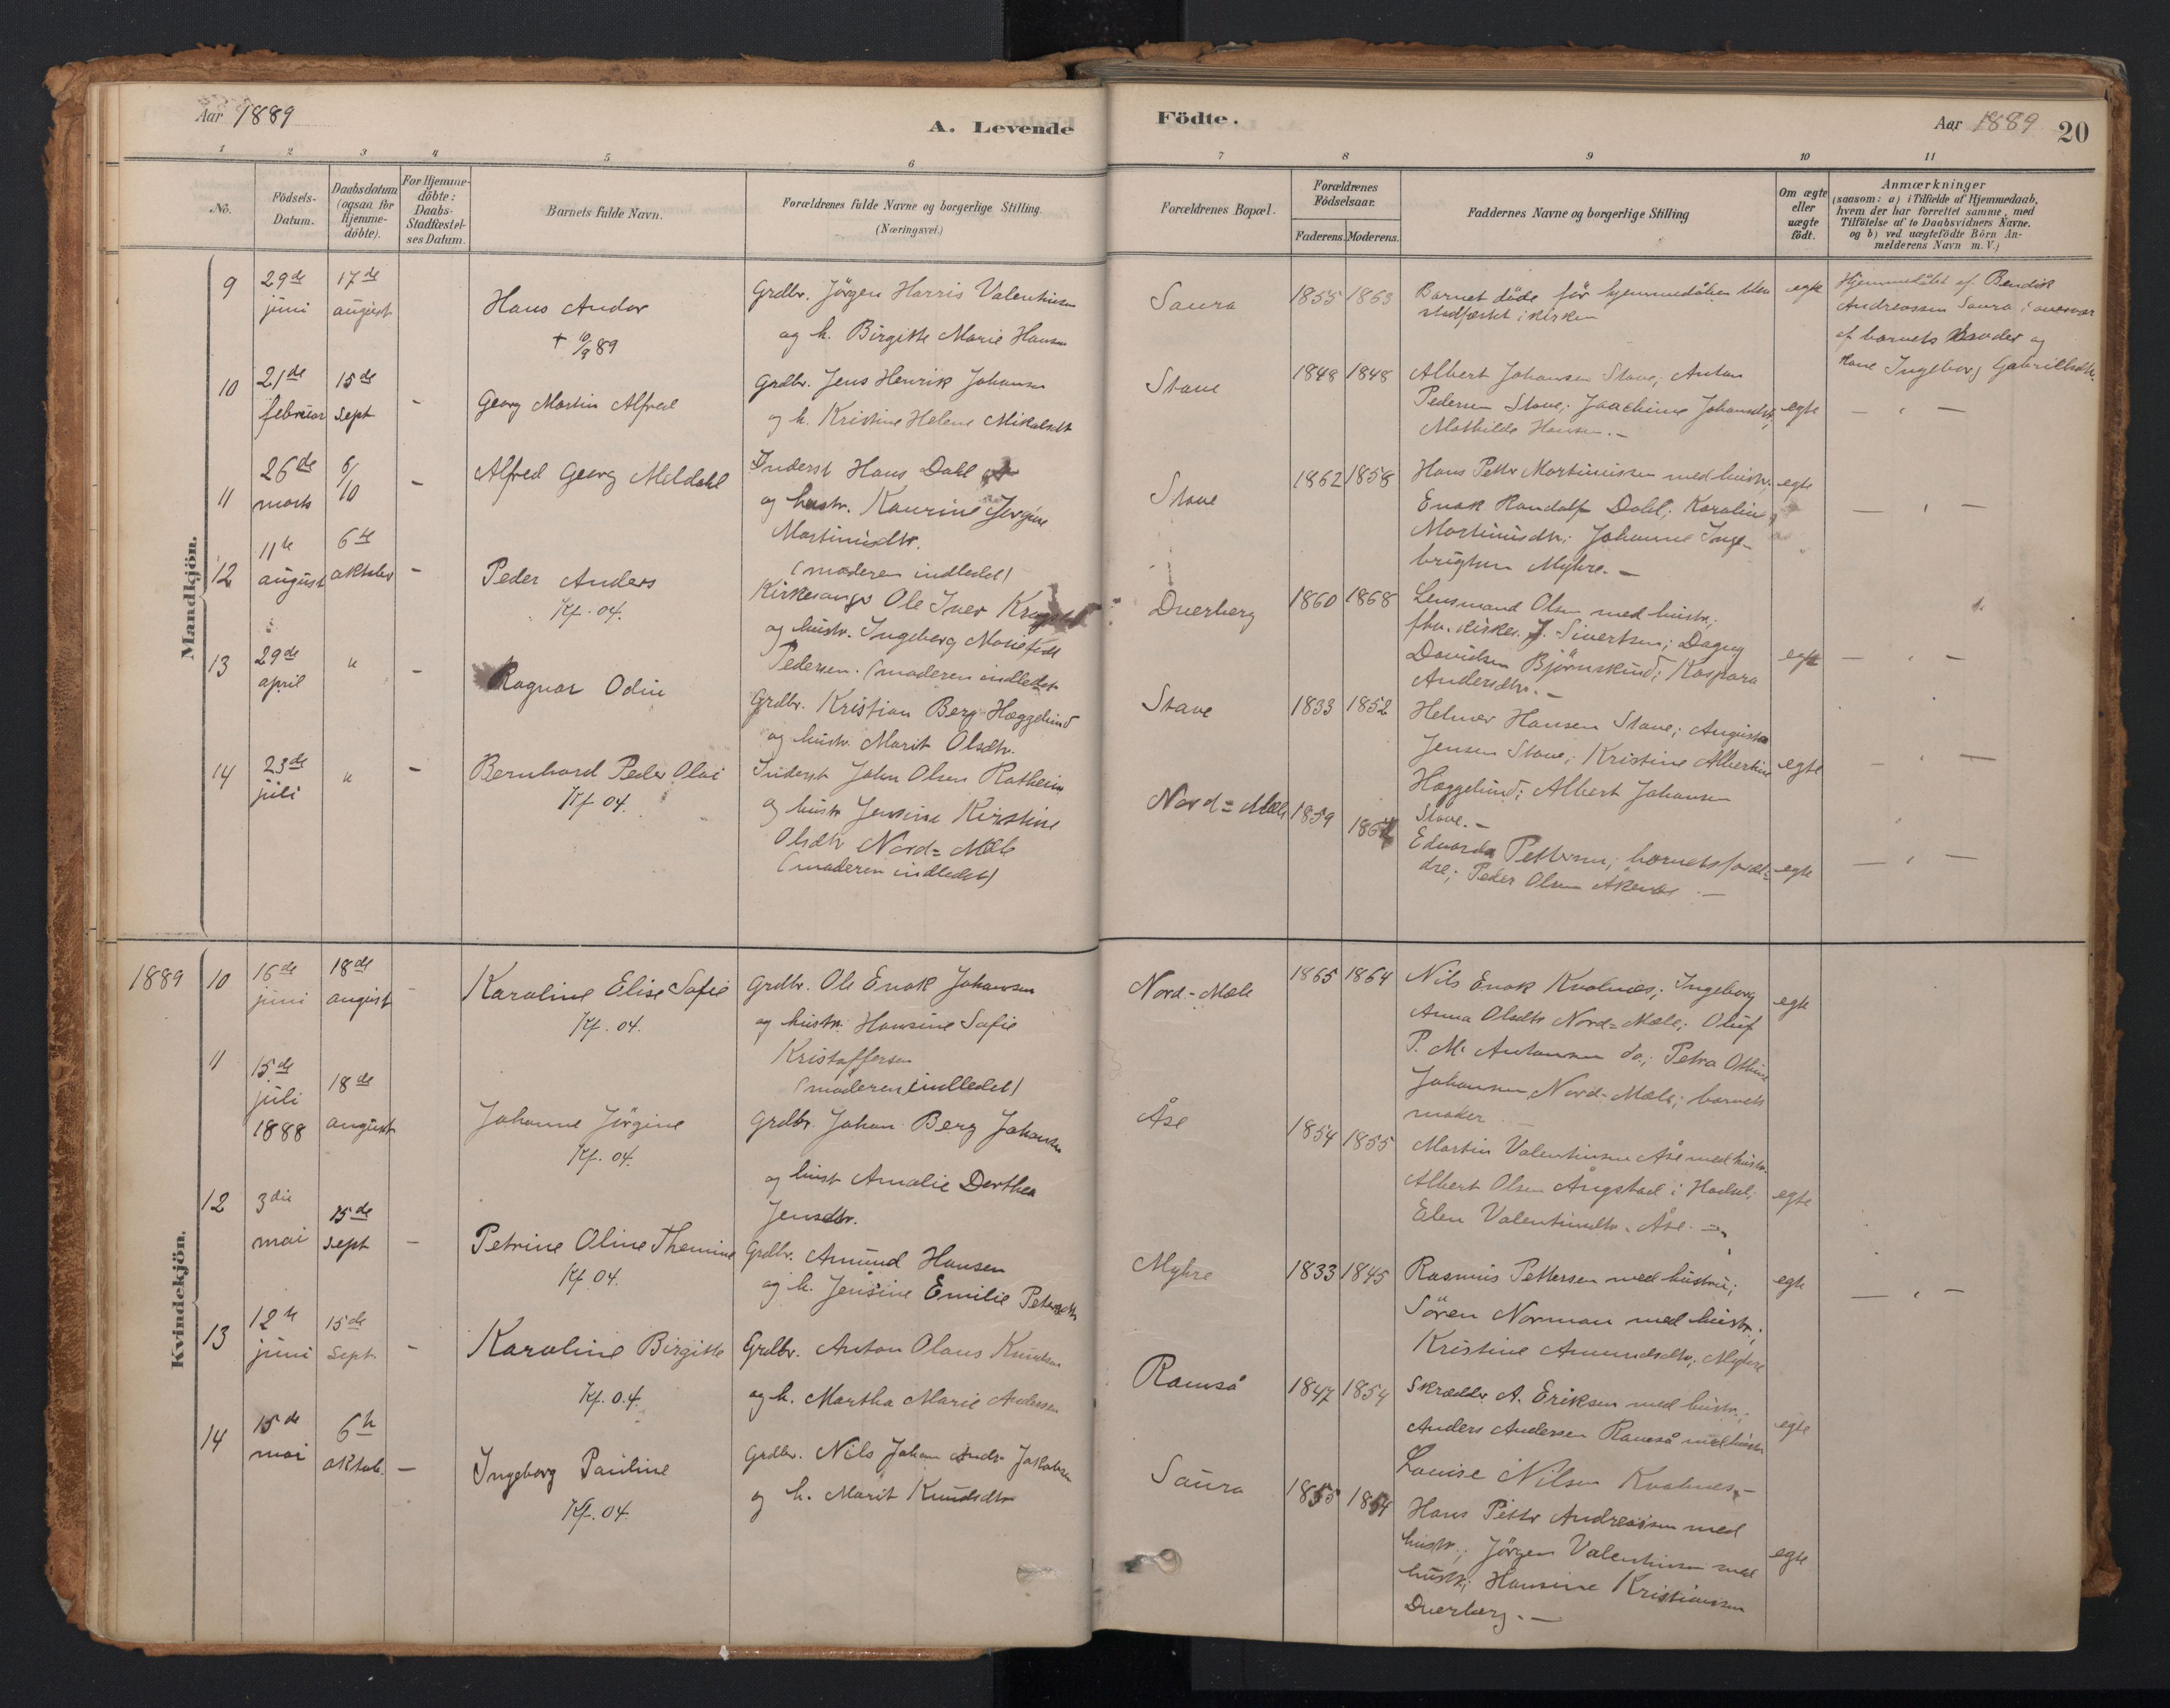 Aar 1889
A. Levende
Födte.
Aar 1889
20
1 2 3 4 5 6 7 8 9 10 11
No.
Födsels-
Datum.
Daabsdatum
(ogsaa for
Hjemme-
döbte).
For Hjemme-
döbte:
Daabs-
Stadfæstel-
ses Datum.
Barnets fulde Navn.
Forældrenes fulde Navne og borgerlige Stilling.
(Næringsvei.)
Forældrenes Bopæl.
Forældrenes
Födselsaar.
Faderens. Moderens.
Faddernes Navne og borgerlige Stilling
Om ægte
eller
uægte
födt.
Anmærkninger
(saasom: a) i Tilfælde af Hjemmedaab,
hvem der har forrettet samme, med
Tilföielse af to Daabsvidners Navne.
og b) ved uægtefödte Börn An-
melderens Navn m. V.)
Mandkjön.
9
29de
juni
17de
august
Hans Andor
+ 10/9 89
Grdbr. Jörgen Harris Valentinsen
og h. Birgitte Marie Hansen
Saura
1855 1863
Barnet döde för hjemmedåben blev
stadfæstet i kirken
egte
Hjemmedöbt af Bendik
Andreassen Saura i overvær
af barnets fader og
kone Ingeborg Gabrielsdtr.
10
21de
februar
15de
sept
-
Georg Martin Alfred
Grdbr. Jens Henrik Johansen
og h. Kristine Helene Mikalsdt
Stave
1848 1848
Albert Johansen Stave; Anton
Pedersen Stave; Joachime Johansdtr;
Mathilde Hansen. -
egte
— " —
11
26de
marts
6/10
-
Alfred Georg Meldahl
Inderst Hans Dahl
og hustr. Kaurine Jörgine
Martinusdtr.
(moderen indledet)
Stave
1862 1858
Hans Petter Martinussen med hustr;
Enok Randolf Dahl; Karoline
Martinusdtr; Johanne Inge-
brigtsen Myhre. -
egte
— " —
12
11te
august
6te
oktober
-
Peder Anders
Kf. 04.
Kirkesanger Ole Iver
og hustr. Ingeborg Marie född
Pedersen. (moderen indledet
Dverberg
1860 1868
Lensmand Olsen med hustr;
J. Sivertsen; Dagny
Davidsen Björnskind; Kaspara
Andersdtr. -
egte
— " —
13
29de
april
"
-
Ragnar Odin
Grdbr. Kristian Berg Hæggelund
og hustr. Marit Olsdtr.
Stave
1833 1852
Helmer Hansen Stave; Augusta
Jensen Stave; Kristine Albertine
Hæggelund; Albert Johansen
Stave. -
egte
— " —
14
23de
juli
"
-
Bernhard Peder Olai
Kf 04.
Inderst John Olsen Ratheim
og hustr Jensine Kirstine
Olsdtr Nord=Mæle
(moderen indledet)
Nord=Mæle
1859
Edvarda Pettersen; barnets foræl=
dre; Peder Olsen Åknes -
egte
— " —
Kvindekjön.
1889
10
16de
juni
18de
august
-
Karoline Elise Sofie
Kf. 04.
Grdbr. Ole Enok Johansen
og hustr. Hansine Sofie
Kristoffersen
(moderen indledet)
Nord-Mæle
1865 1864
Nils Enok Kvalnes; Ingeborg
Anna Olsdtr Nord=Mæle; Oluf
P. M. Antonsen do; Petra Othine
Johansen Nord-Mæle; barnets
moder
egte
11
15de
juli
1888
18de
august
Johanne Jörgine
Kf. 04.
Grdbr. Johan Berg Johansen
og hust Amalie Derthea
Jensdtr.
Åse
1854 1855
Martin Valentinsen Åse med hustr.
Albert Olsen Ångstad i Hadsel;
Elen Valentinsdtr. Åse. -
egte
12
3die
mai
15de
sept
-
Petrine Oline Themine
Kf 04.
Grdbr. Amund Hansen
og h. Jensine Emilie Petersdtr
Myhre
1833 1845
Rasmus Pettersen med hustru;
Sören Norman med hustr;
Kristine Amundsdtr. Myhre
egte
— " —
13
12te
juni
15de
sept.
-
Karoline Birgitte
Kf. 04.
Grdbr. Anton Olaus Knudsen
og h. Martha Marie Andersen
Ramså
1847 1854
Skrædder A. Eriksen med hustr.;
Anders Andersen Ramså med hustr
Louise Nilsen Kvalnes. -
egte
14
15de
mai
6te
oktob.
—
Ingeborg Pauline
Kf. 04.
Grdbr. Nils Johan Andr. Jakobsen
og h. Marit Knudsdtr
Saura
1855 1854
Hans Petter Andreassen med
hustr.; Jörgen Valentinsen med
hustr; Hansine Kristiansen
Dverberg. -
egte